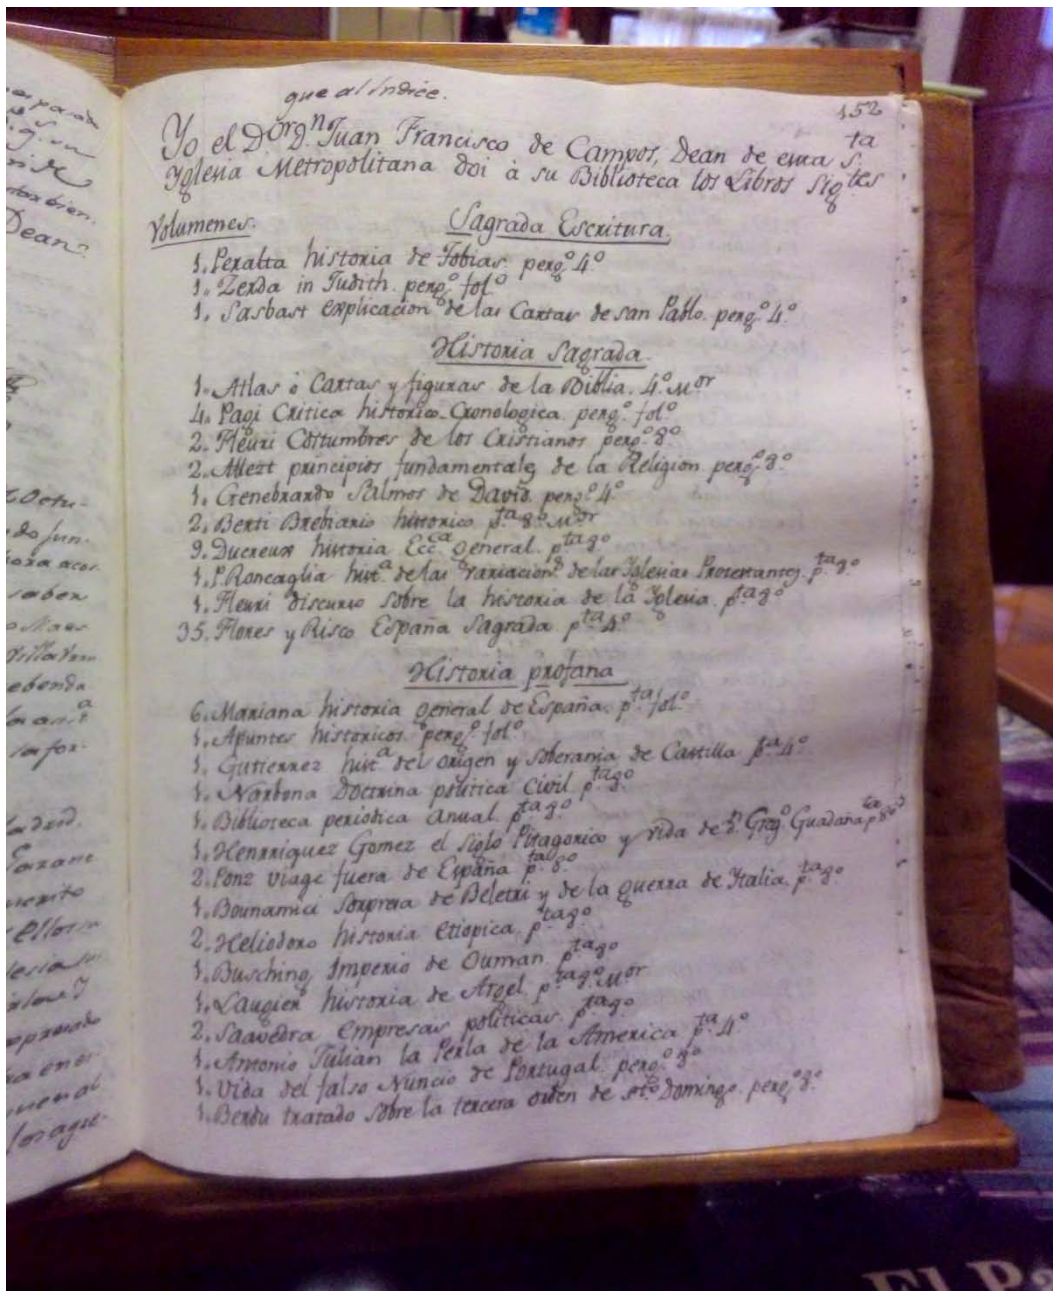 gue al Indice.
152
Yo el D.or D.n Juan Francisco de Campos, Dean de essa S.ta
Yglesia Metropolitana doi à su Biblioteca los Libros sig.tes
Volumenes. Sagrada Escritura.
1. Peralta historia de Tobias. perg.o 4.o
1. Zerda in Judith. perg.o fol.o
1. Sasbast explicacion de las Cartas de san Pablo. perg.o 4.o
Historia Sagrada.
1. Atlas ò Cartas y figuras de la Biblia. 4.o M.or
4. Pagi Critica historico-Cronologica. perg.o fol.o
2. Fleuri Costumbres de los Cristianos perg.o 8.o
2. Allezt principios fundamentales de la Religion perg.o 8.o
1. Genebrardo Salmos de David. perg.o 4.o
2. Berti Brebiario historico p.ta 8.o M.or
9. Ducreux historia Ecc.ca general. p.ta 8.o
1. P. Roncaglia hist.a de las variacion.s de las Yglesias Protestantes. p.ta 8.o
1. Fleuri discurso sobre la historia de la Yglesia. p.ta 8.o
35. Flores y Risco España Sagrada p.ta 4.o
Historia profana
6. Mariana historia general de España. p.ta fol.o
1. Apuntes historicos perg.o fol.o
1. Gutierrez hist.a del origen y soberania de Castilla p.ta 4.o
1. Narbona Doctrina politica Civil. p.ta 8.o
1. Biblioteca periodica Anual. p.ta 8.o
1. Henrriquez Gomez el Siglo Pitagorico y vida de D.n Greg.o Guadaña p.ta 8.o
2. Ponz viage fuera de España p.ta 8.o
1. Bounamici Sorpresa de Beletri y de la guerra de Italia. p.ta 8.o
2. Heliodoro historia Etiopica. p.ta 8.o
1. Busching Imperio de Ouman. p.ta 8.o
1. Laugier historia de Argel p.ta 8.o M.or
2. Saavedra Empresas politicas. p.ta 8.o
1. Antonio Julian la Perla de la America p.ta 4.o
1. Vida del falso Nuncio de Portugal. perg.o 8.o
1. Berdu tratado sobre la tercera orden de st.o Domingo. perg.o 8.o
El Pa